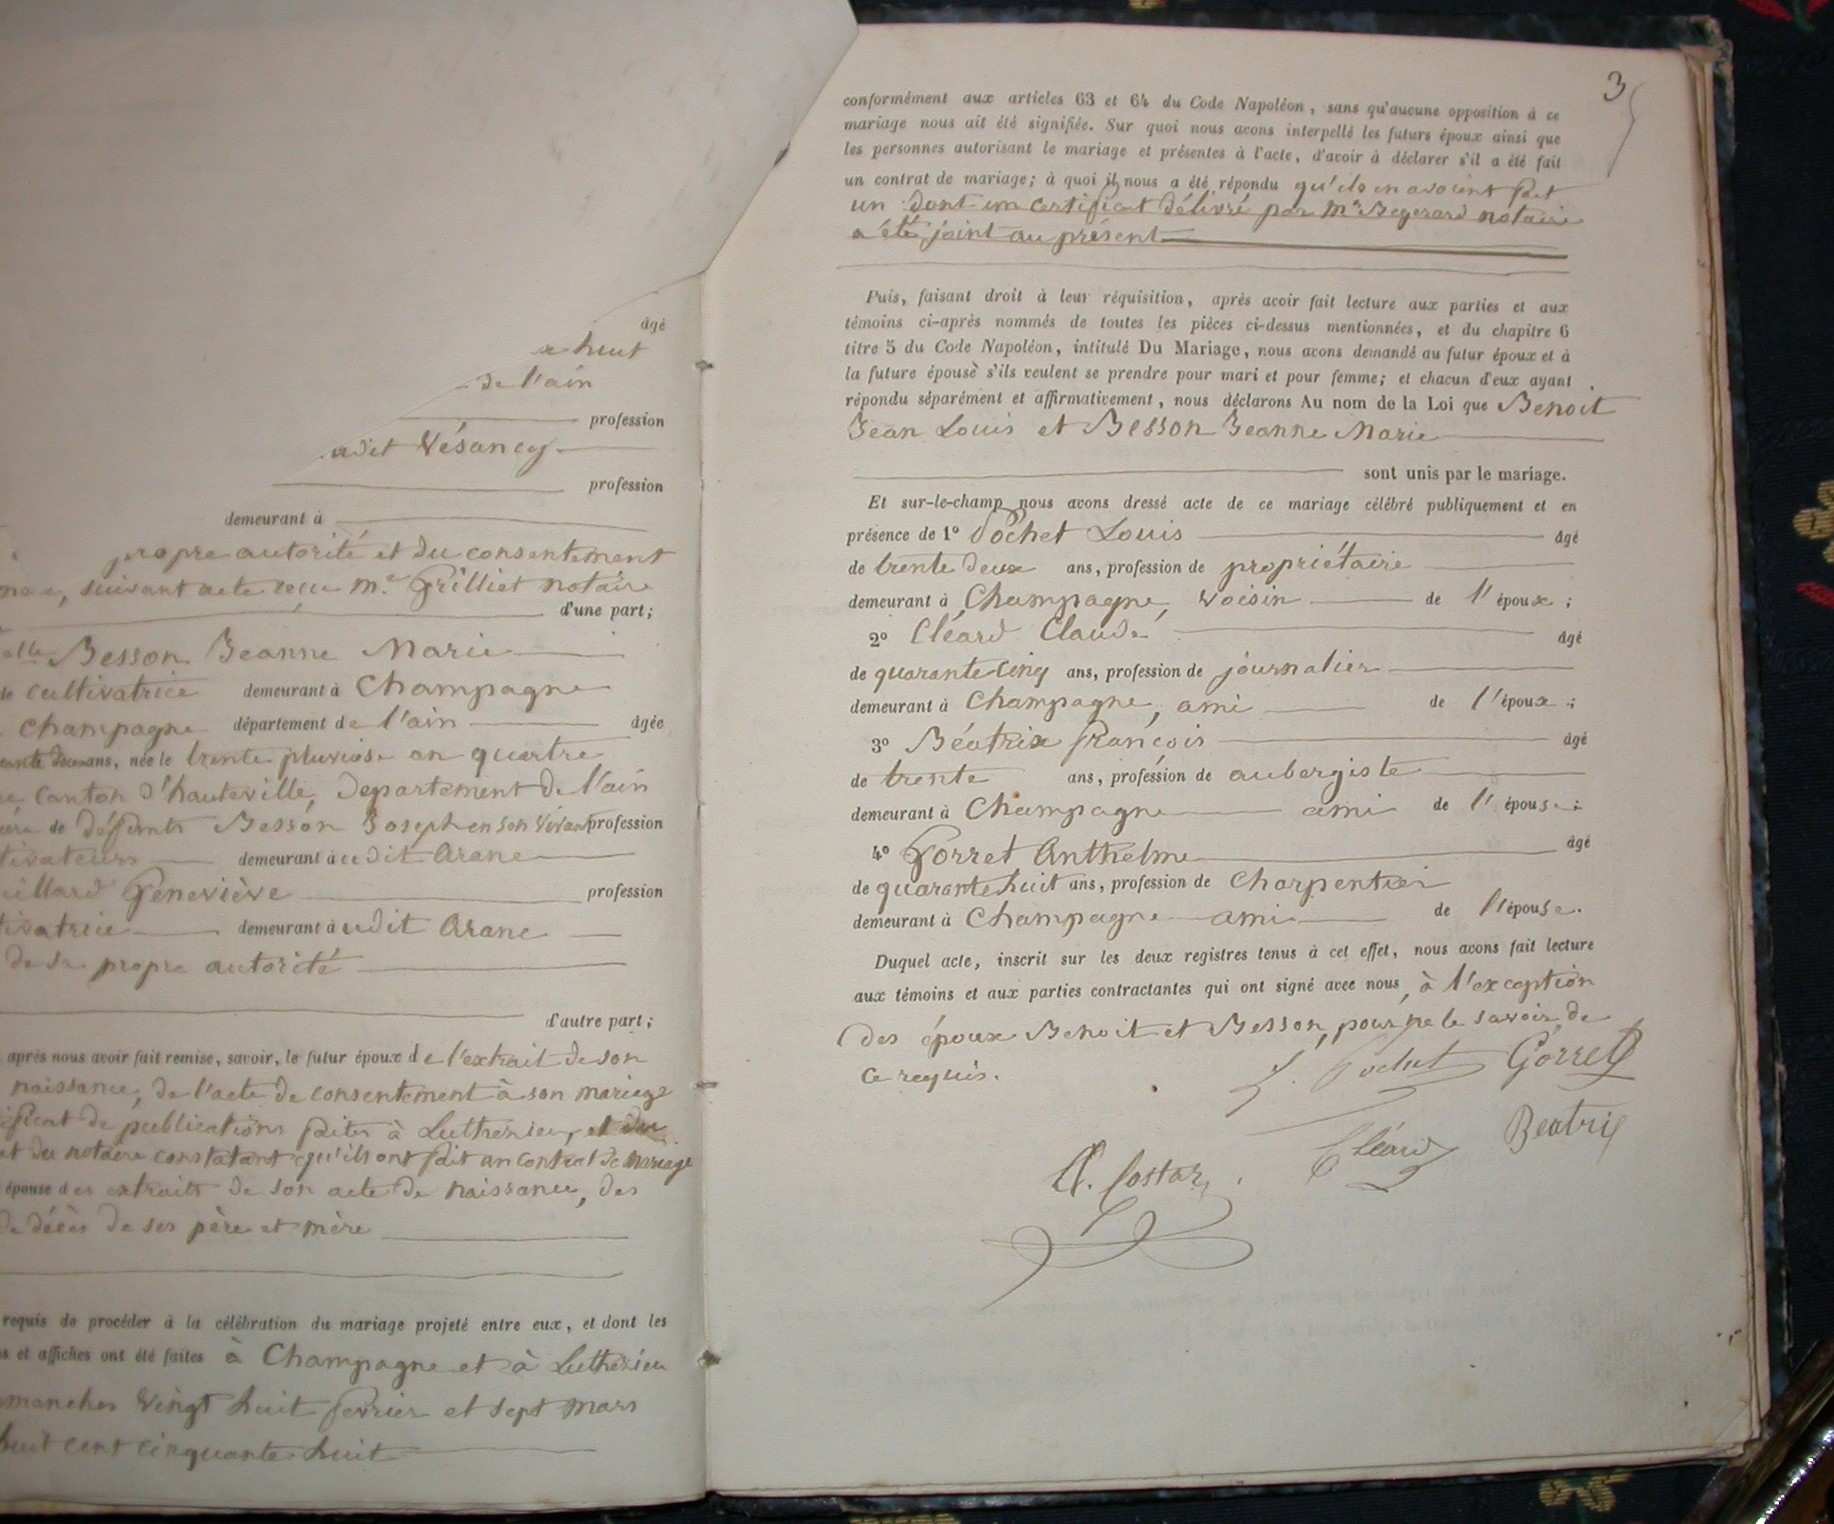 âgé
huit
de l'ain
profession
udit Vésancy
profession
demeurant à
propre autorité et du consentement
suivant acte reçu Me. Grilliet notaire
d'une part;
elle Besson Jeanne Marie
de cultivatrice demeurant à Champagne
Champagne département de l'ain âgée
ans, née le trente pluviose an quatre
canton d'hauteville, Departement de l'ain
de défunts Besson Joseph en son vivant profession
tivateurs demeurant à udit Arane
Geneviève profession
tivatrice demeurant à udit Arane
de sa propre autorité
d'autre part;
après nous avoir fait remise, savoir, le futur époux de l'extrait de son
naissance, de l'acte de consentement à son mariage
ificat de publications faites à Luthézieu, et du
at du notaire constatant qu'ils ont fait un contrat de mariage
épouse des extraits de son acte de naissance, des
de décès de ses père et mère
requis de procéder à la célébration du mariage projeté entre eux, et dont les
s et affiches ont été faites à Champagne et à Luthézieu
manches vingt huit fevrier et sept mars
huit cent cinquante huit
3
conformément aux articles 63 et 64 du Code Napoléon, sans qu'aucune opposition à ce
mariage nous ait été signifiée. Sur quoi nous avons interpellé les futurs époux ainsi que
les personnes autorisant le mariage et présentes à l'acte, d'avoir à déclarer s'il a été fait
un contrat de mariage; à quoi il nous a été répondu qu'ils en avoient fait
un dont un certificat délivré par Me notaire
a été joint au présent
Puis, faisant droit à leur réquisition, après avoir fait lecture aux parties et aux
témoins ci-après nommés de toutes les pièces ci-dessus mentionnées, et du chapitre 6
titre 5 du Code Napoléon, intitulé Du Mariage, nous avons demandé au futur époux et à
la future épouse s'ils veulent se prendre pour mari et pour femme; et chacun d'eux ayant
répondu séparément et affirmativement, nous déclarons Au nom de la Loi que Benoit
Jean Louis et Besson Jeanne Marie
sont unis par le mariage.
Et sur-le-champ nous avons dressé acte de ce mariage célébré publiquement et en
présence de 1° Pochet Louis âgé
de trente deux ans, profession de propriétaire
demeurant à Champagne, voisin de l'époux;
2° Cléard Claude âgé
de quarante cinq ans, profession de journalier
demeurant à Champagne, ami de l'époux;
3° Béatrix françois âgé
de trente ans, profession de aubergiste
demeurant à Champagne ami de l'épouse;
4° Gorret Anthelme âgé
de quarante huit ans, profession de Charpentier
demeurant à Champagne ami de l'épouse.
Duquel acte, inscrit sur les deux registres tenus à cet effet, nous avons fait lecture
aux témoins et aux parties contractantes qui ont signé avec nous, à l'exception
des époux Benoit et Besson, pour ne le savoir, de
ce requis.
L. Pochet Gorret
Cléard Béatrix
A. Costaz